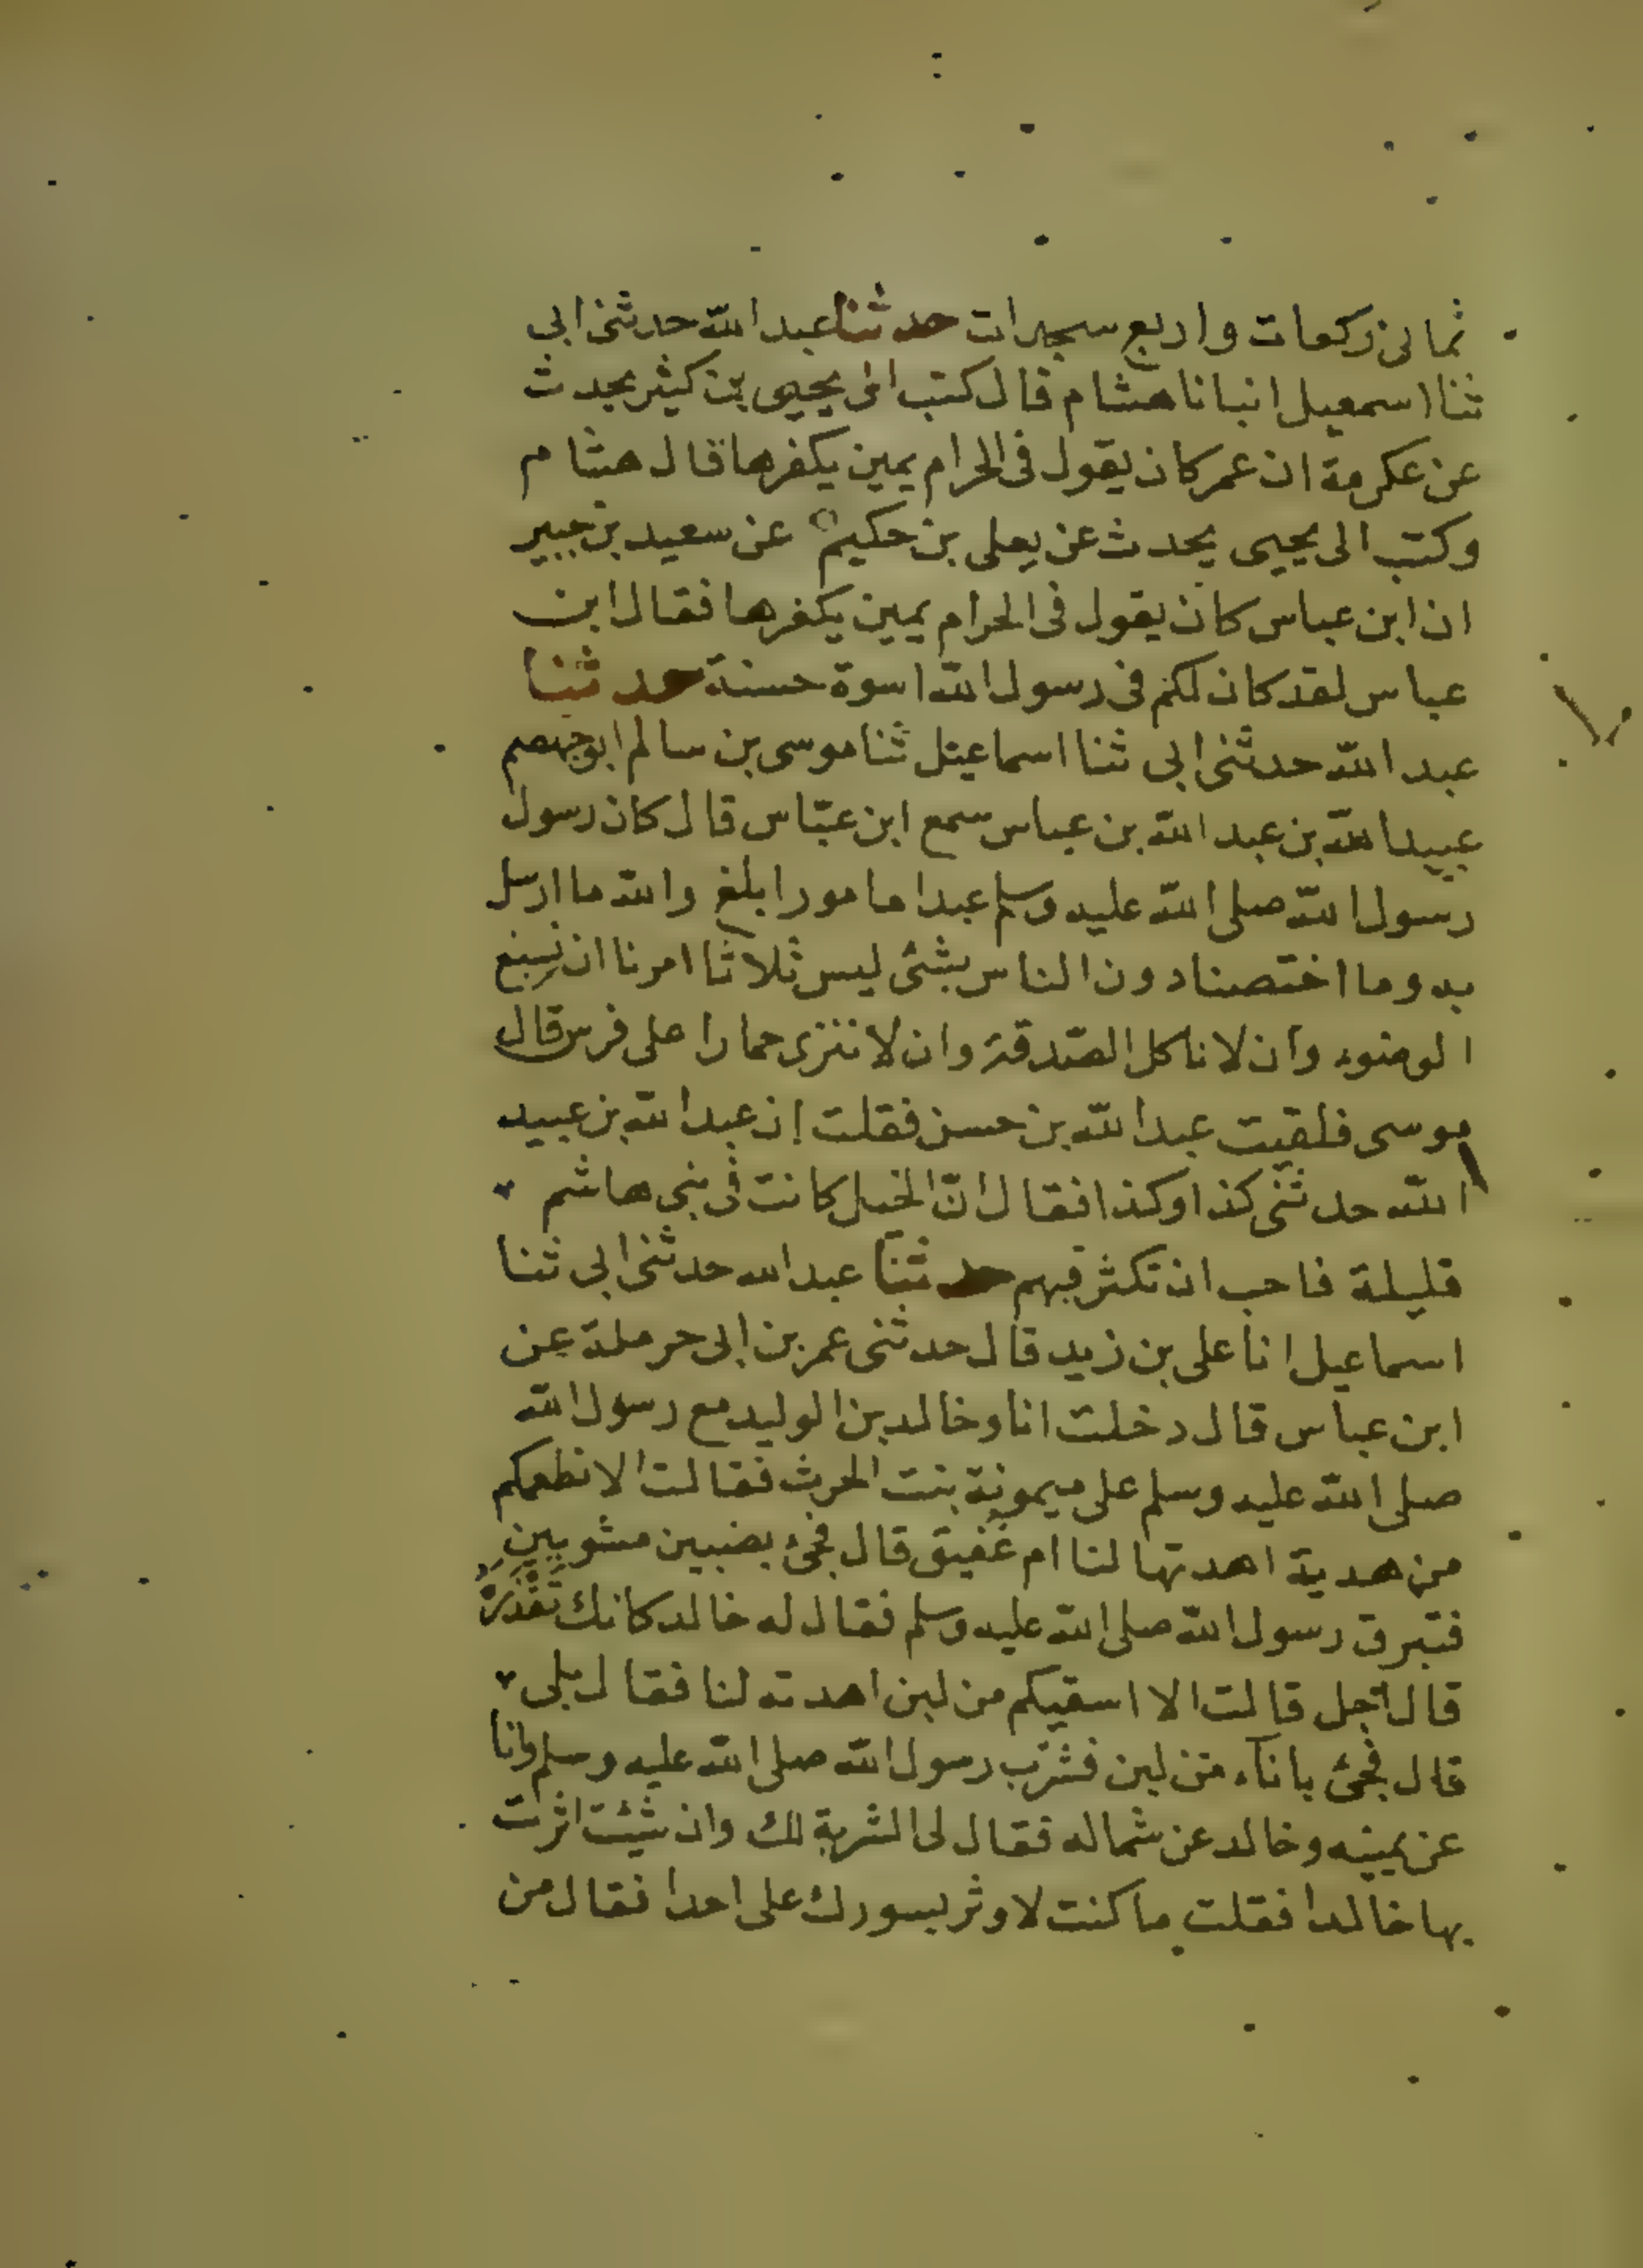 ثمانى ركعات واربع سجدات حدثنا عبد الله حدثنى ابى
ثنا اسمعيل انبانا هشام قال كتب الى يحيى بن كثير يحدث
عن عكرمة ان عمر كان يقول فى الحرام يمين يكفرها قال هشام
وكتب الى يحيى يحدث عن يعلى بن حكيم عن سعيد بن جبير
ان ابن عباس كان يقول فى الحرام يمين يكفرها فقال ابن
عباس لقد كان لكم فى رسول الله اسوة حسنة حدثنا
عبد الله حدثنى ابى ثنا اسماعيل ثنا موسى بن سالم ابو جهضم
عبيد الله بن عبد الله بن عباس سمع ابن عبّاس قال كان رسول
رسول الله صلى الله عليه وسلم عبدا مامورا بلغ والله ما ارسل
به وما اختصنا دون الناس بشئ ليس ثلاثا امرنا ان نسبغ
الوضوء وان لا ناكل الصّدقة وان لا ننزى حمارا على فرس قال
موسى فلقيت عبد الله بن حسن فقلت إن عبد الله بن عبيد
الله حدثنى كذا وكذا فقال انّ الخيل كانت فى بنى هاشم
قليلة فاحب ان تكثر فيهم حدثنا عبد الله حدثنى ابى ثنا
اسماعيل انا على بن زيد قال حدثنى عمر بن ابى حرملة عن
ابن عباس قال دخلت انا وخالد بن الوليد مع رسول الله
صلى الله عليه وسلم على ميمونة بنت الحرث فقالت الا نطعمكم
من هدية اهدتها لنا ام عُفيق قال فجئ بضبين مشويين
فتبرق رسول الله صلى الله عليه وسلم فقال له خالد كانك تَقَذَّرُهُ
قال اجل قالت الا اسقيكم من لبن اهدته لنا فقال بلى
قال فجئ باناء من لبن فشرب رسول الله صلى الله عليه وسلم وانا
عن يمينه وخالد عن شماله فقال لى الشربة لك وان شئت اثرت
بها خالدا فقلت ما كنت لاوثر بسورك على احدا فقال من